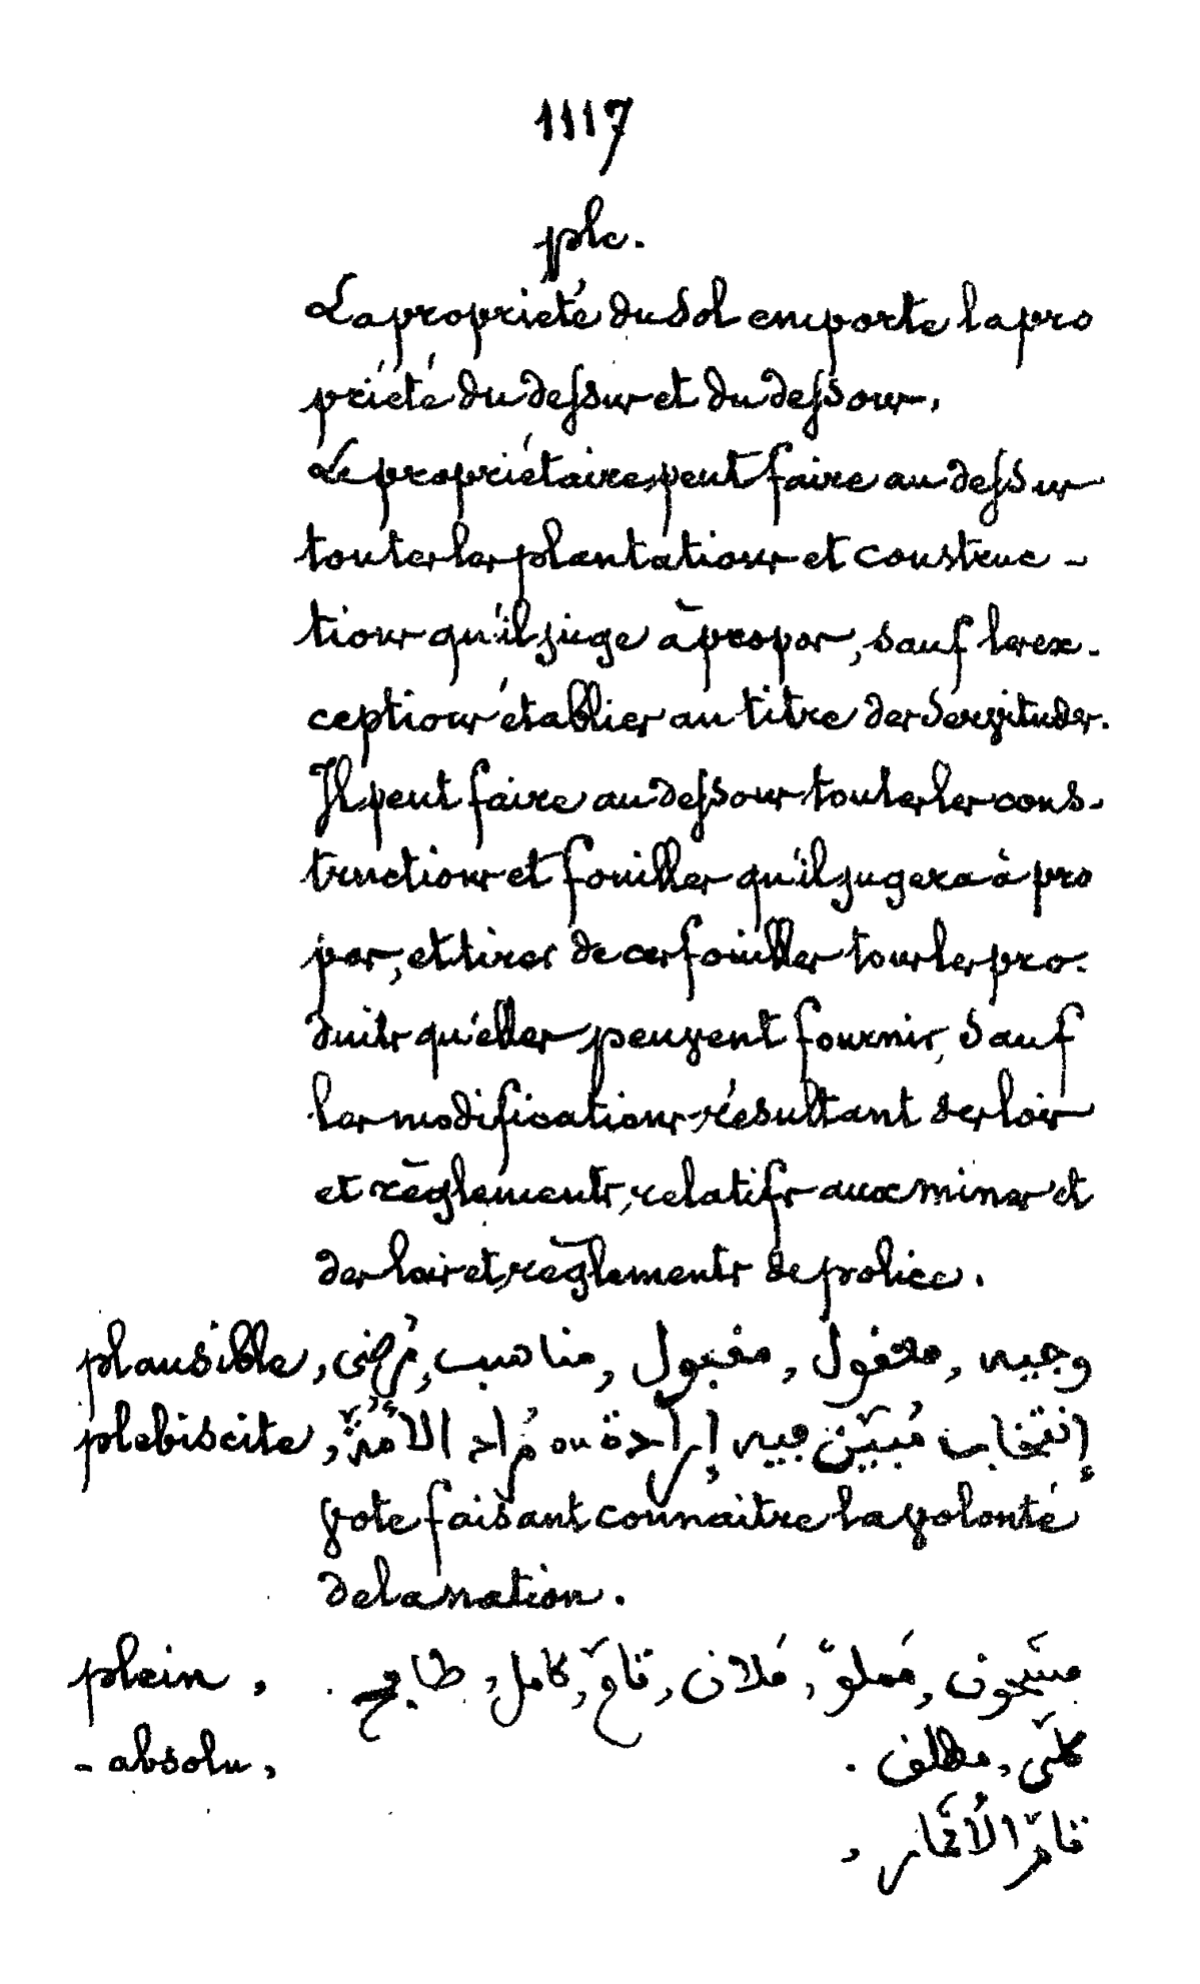 1117
ple.
La propriété du sol emporte la pro
priété du dessus et du dessous.
Le propriétaire peut faire au dessus
toutes les plantations et construc-
tions qu'il juge à propos, sauf les ex-
ceptions établies au titre des servitudes.
Il peut faire au dessous toutes les cons-
tructions et fouilles qu'il jugera à pro
pos, et tirer de ces fouilles tous les pro-
duits qu'elles peuvent fournir, sauf
les modifications résultant des lois
et règlements, relatifs aux mines et
des lois et règlements de police.
plausible, وجيه, معقول, مقبول, مناسب, مُرضى
plebiscite, إنتخاب مُبيّن فيه إرادة ou مُراد الأُمّة,
vote faisant connaitre la volonté
de la nation.
plein, مشحون, مَملوّ, مَلان, تامّ, كامل, طابح.
- absolu, كلّى, مطلق.
تامّ الأثمار,